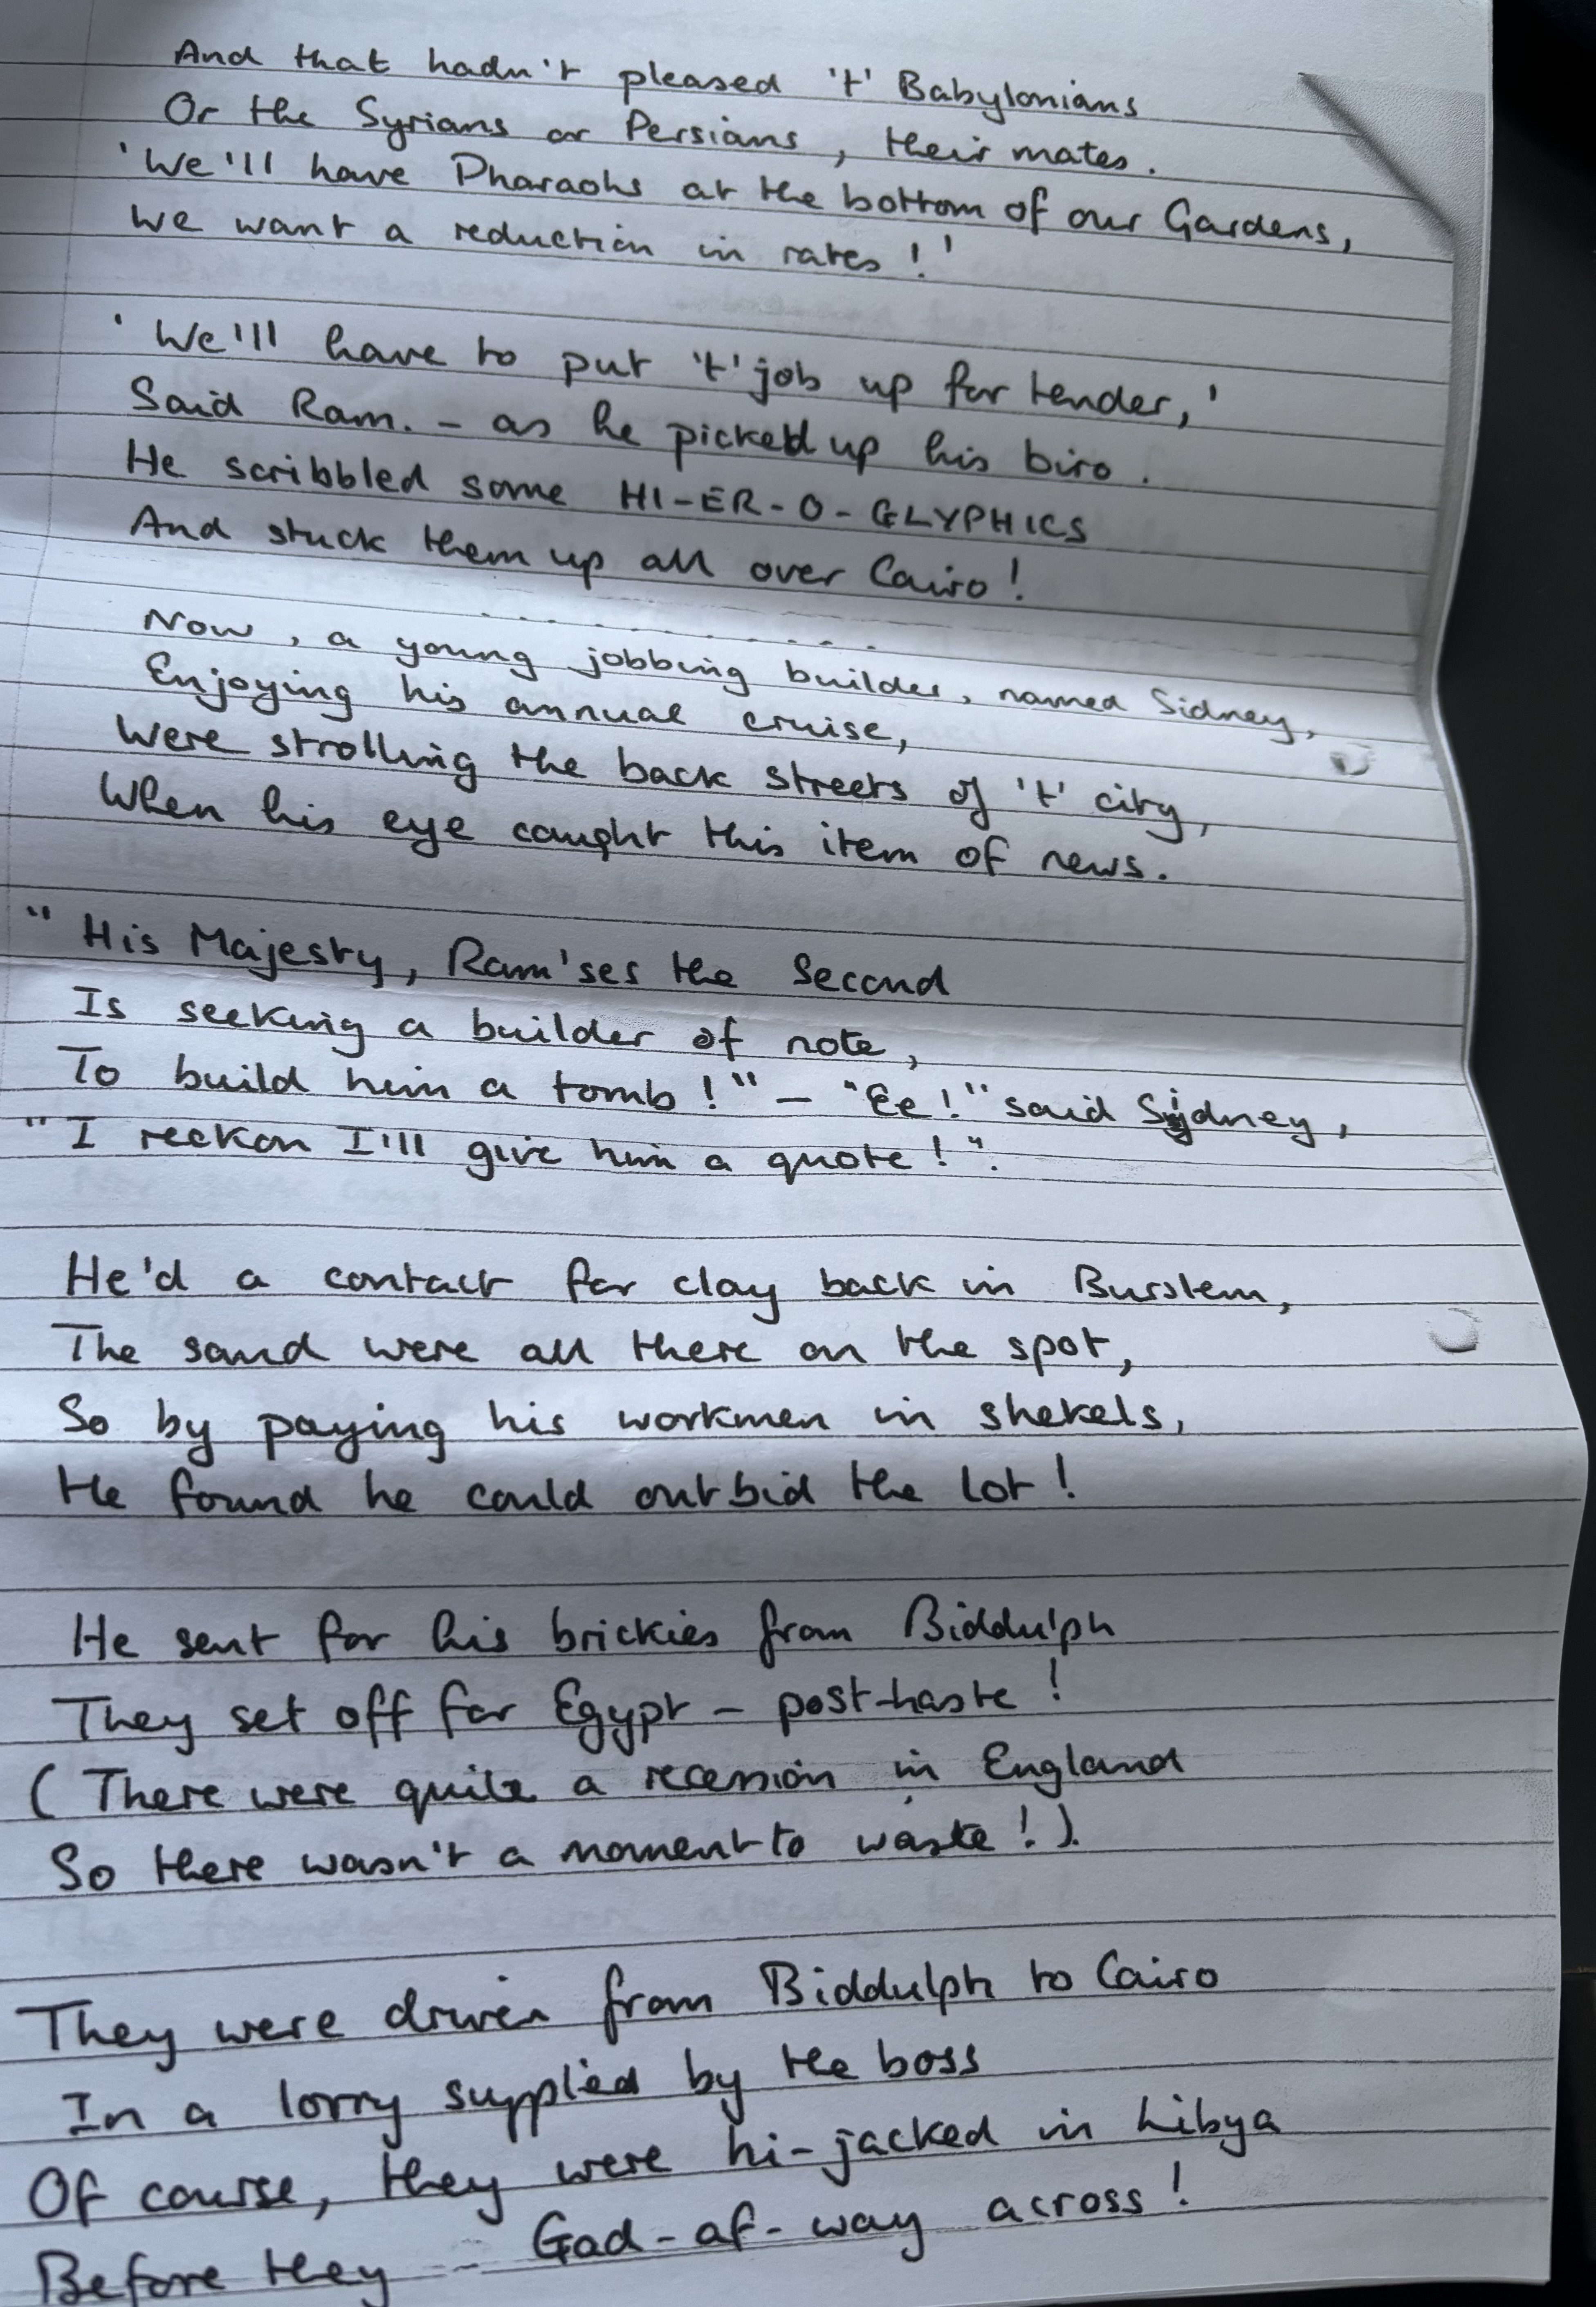 And that hadn't pleased 't' Babylonians
Or the Syrians or Persians, their mates.
'We'll have Pharaohs at the bottom of our Gardens,
We want a reduction in rates!'
'We'll have to put 't' job up for tender,'
Said Ram. - as he picked up his biro.
He scribbled some HI-ER-O-GLYPHICS
And stuck them up all over Cairo!
Now, a young jobbing builder, named Sidney,
Enjoying his annual cruise,
Were strolling the back streets of 't' city,
When his eye caught this item of news.
"His Majesty, Ram'ses the Second
Is seeking a builder of note,
To build him a tomb!" - "Ee!" said Sidney,
"I reckon I'll give him a quote!".
He'd a contact for clay back in Burslem,
The sand were all there on the spot,
So by paying his workmen in shekels,
He found he could outbid the lot!
He sent for his brickies from Biddulph
They set off for Egypt - post-haste!
(There were quite a recession in England
So there wasn't a moment to waste!).
They were driven from Biddulph to Cairo
In a lorry supplied by the boss
Of course, they were hi-jacked in Libya
Before they - Gad-af-way across!